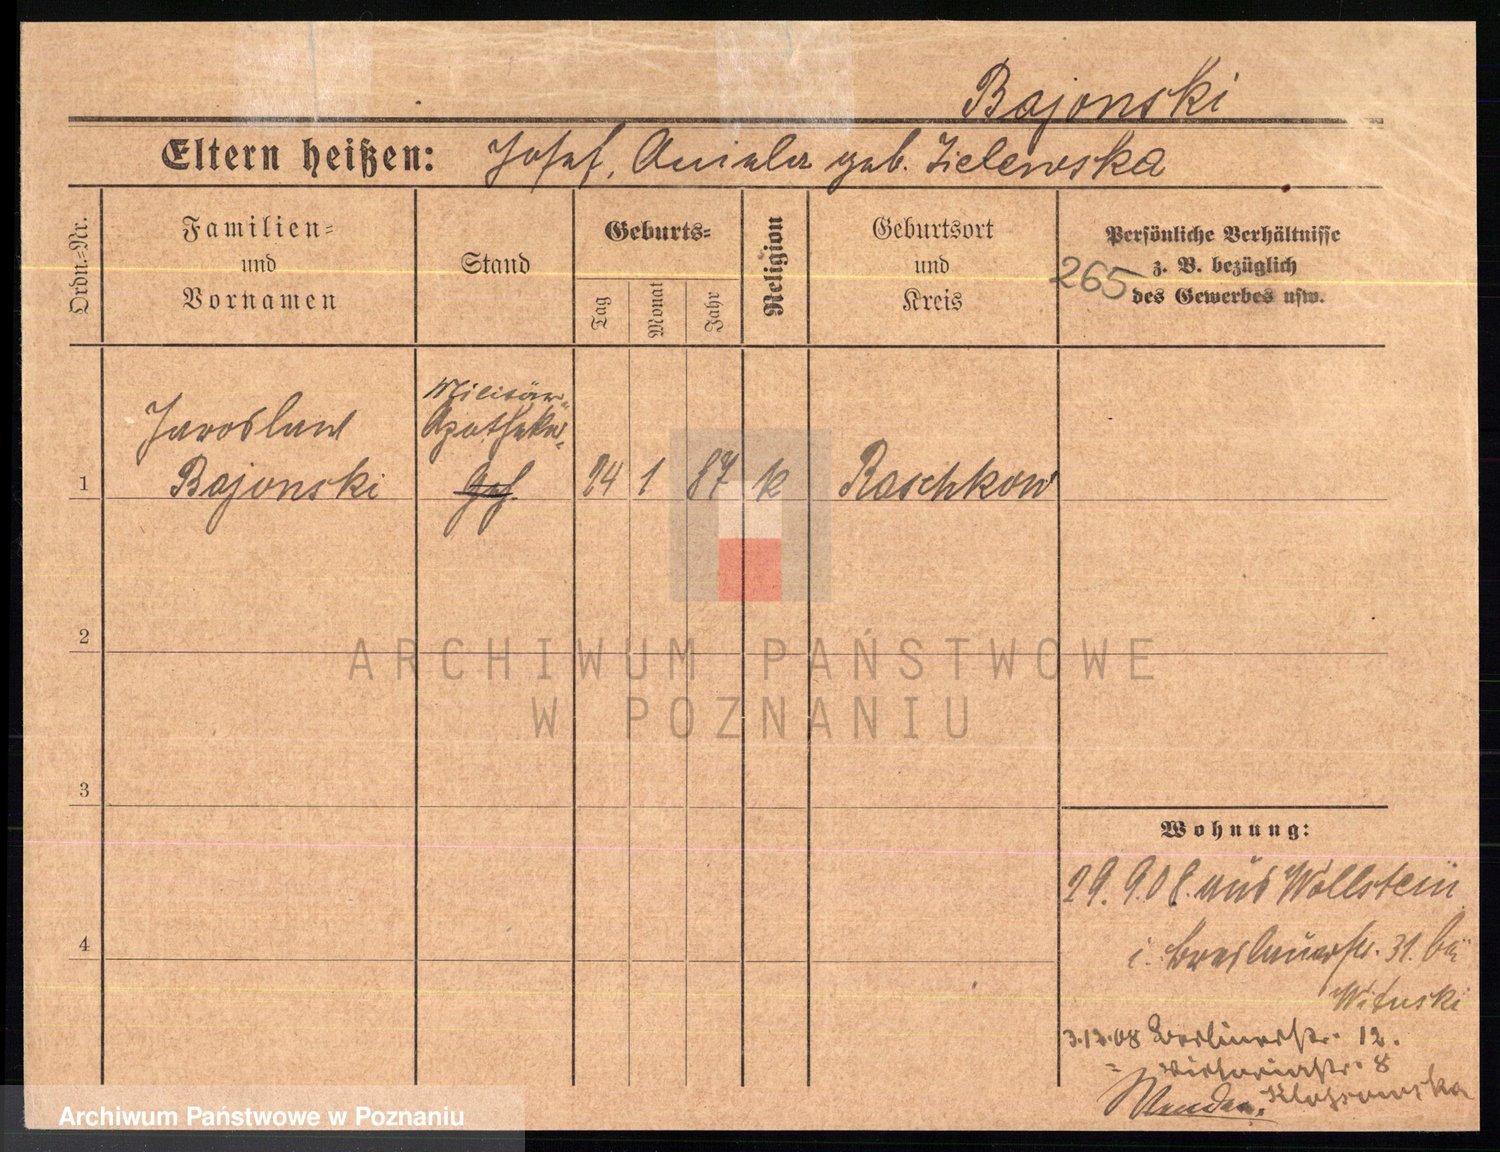 Bajonski
Eltern heißen: Josef, Aniela geb. Zielewska
Ordn.=Nr.
Familien=
und
Vornamen
Stand
Geburts=
Tag
Monat
Jahr
Religion
Geburtsort
und
Kreis
Persönliche Verhältnisse
z. B. bezüglich
des Gewerbes usw.
265
Jaroslaw
Bajonski
Militär-
Apotheker-
Geh.
1
24 1 87 k Raschkow
2
ARCHIWUM PAŃSTWOWE
W POZNANIU
3
Wohnung:
29. 9. 08. aus Wollstein
4
i. Breslauerstr. 31. bei
Wituski
3.12.08 Berlinerstr. 12.
Victoriastr. 8
Klossowska
Archiwum Państwowe w Poznaniu